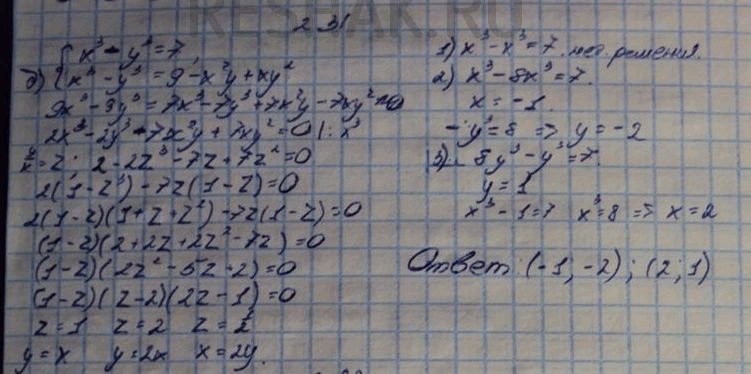 RESHAK.RU
2.31
д) { x³ - y³ = 7,
x³ - y³ = 9 - x²y + xy²
9x³ - 9y³ = 7x³ - 7y³ + 7x²y - 7xy²
2x³ - 2y³ - 7x²y + 7xy² = 0 | : x³
y/x = z; 2 - 2z³ - 7z + 7z² = 0
2(1 - z³) - 7z(1 - z) = 0
2(1 - z)(1 + z + z²) - 7z(1 - z) = 0
(1 - z)(2 + 2z + 2z² - 7z) = 0
(1 - z)(2z² - 5z + 2) = 0
(1 - z)(z - 2)(2z - 1) = 0
z = 1 z = 2 z = ½
y = x y = 2x x = 2y.
1) x³ - x³ = 7. нет решения.
2) x³ - 8x³ = 7.
x = -1.
-y³ = 8 => y = -2
3) 8y³ - y³ = 7.
y = 1
x³ - 1 = 7 x³ = 8 => x = 2
Ответ: (-1; -2); (2; 1)